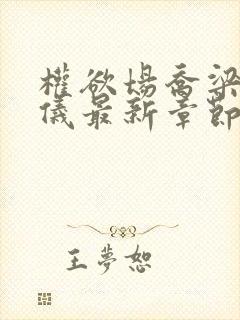 權欲場喬梁
儀最新章節
王夢恕